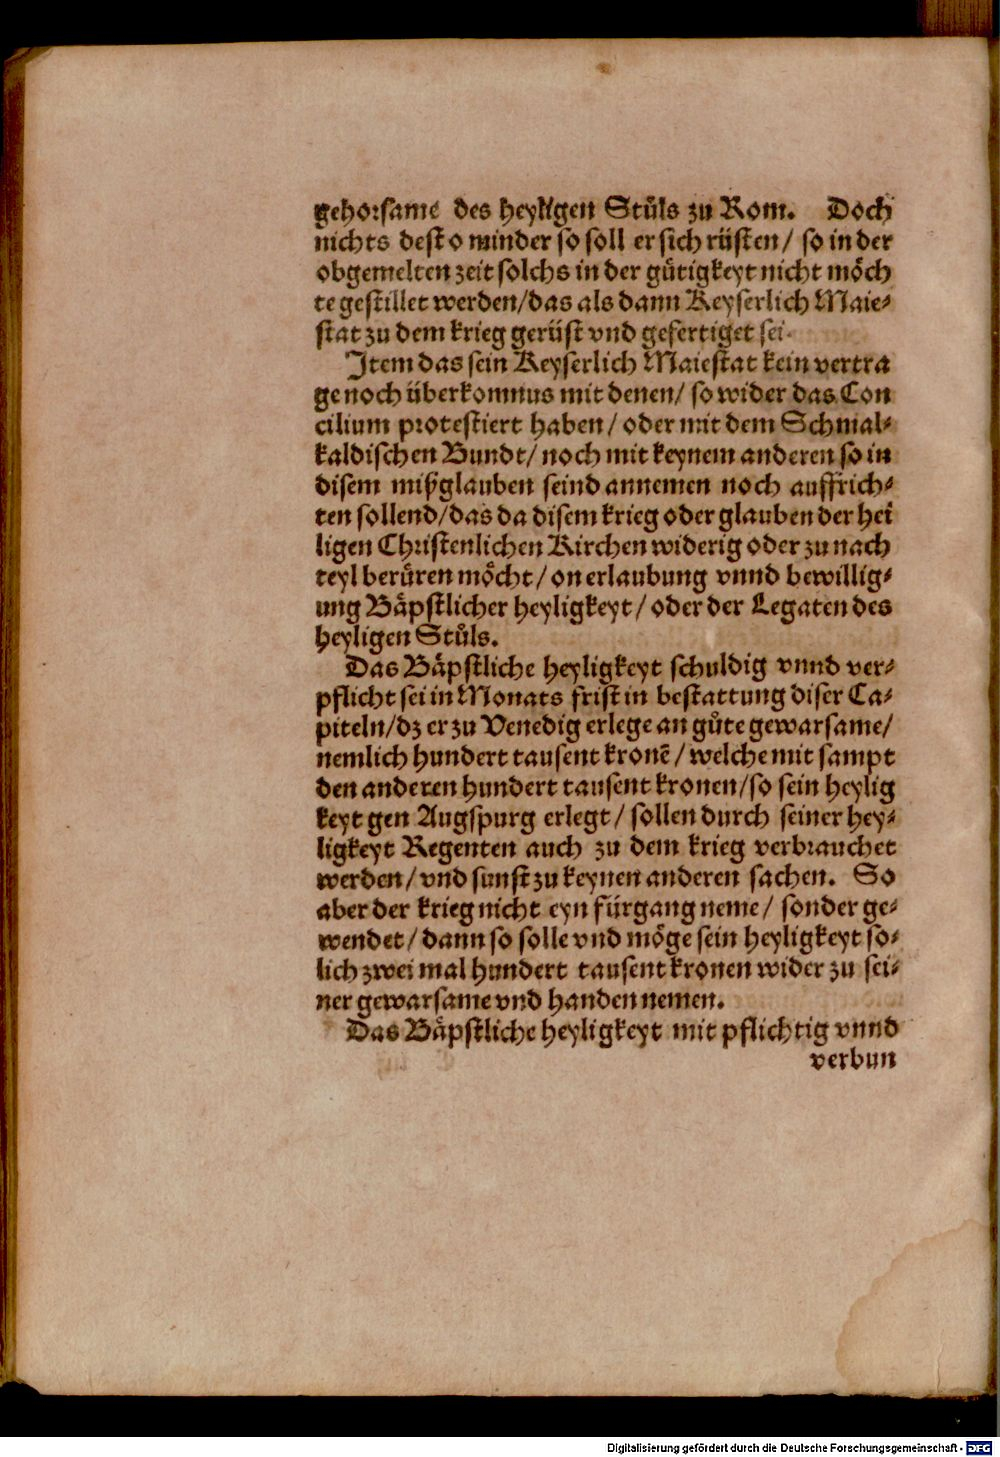 gehorsame des heyligen Stůls zu Rom. Doch
nichts desto minder so soll er sich rüsten/ so in der
obgemelten zeit solchs in der gůtigkeyt nicht möch
te gestillet werden/das als dann Keyserlich Maie-
stat zu dem krieg gerüst vnd gefertiget sei.
Item das sein Keyserlich Maiestat kein vertra
ge noch überkomnus mit denen/ so wider das Con
cilium protestiert haben/ oder mit dem Schmal-
kaldischen Bundt/ noch mit keynem anderen so in
disem mißglauben seind annemen noch auffrich-
ten sollend/das da disem krieg oder glauben der hei
ligen Christenlichen Kirchen widerig oder zu nach
teyl berůren möcht/ on erlaubung vnnd bewillig-
ung Bäpstlicher heyligkeyt/ oder der Legaten des
heyligen Stůls.
Das Bäpstliche heyligkeyt schuldig vnnd ver-
pflicht sei in Monats frist in bestattung diser Ca-
piteln/dz er zu Venedig erlege an gůte gewarsame/
nemlich hundert tausent kronē/ welche mit sampt
den anderen hundert tausent kronen/so sein heylig
keyt gen Augspurg erlegt/ sollen durch seiner hey-
ligkeyt Regenten auch zu dem krieg verbrauchet
werden/ vnd sunst zu keynen anderen sachen. So
aber der krieg nicht eyn fürgang neme/ sonder ge-
wendet/ dann so solle vnd möge sein heyligkeyt so-
lich zwei mal hundert tausent kronen wider zu sei-
ner gewarsame vnd handen nemen.
Das Bäpstliche heyligkeyt mit pflichtig vnnd
verbun
Digitalisierung gefördert durch die Deutsche Forschungsgemeinschaft - DFG